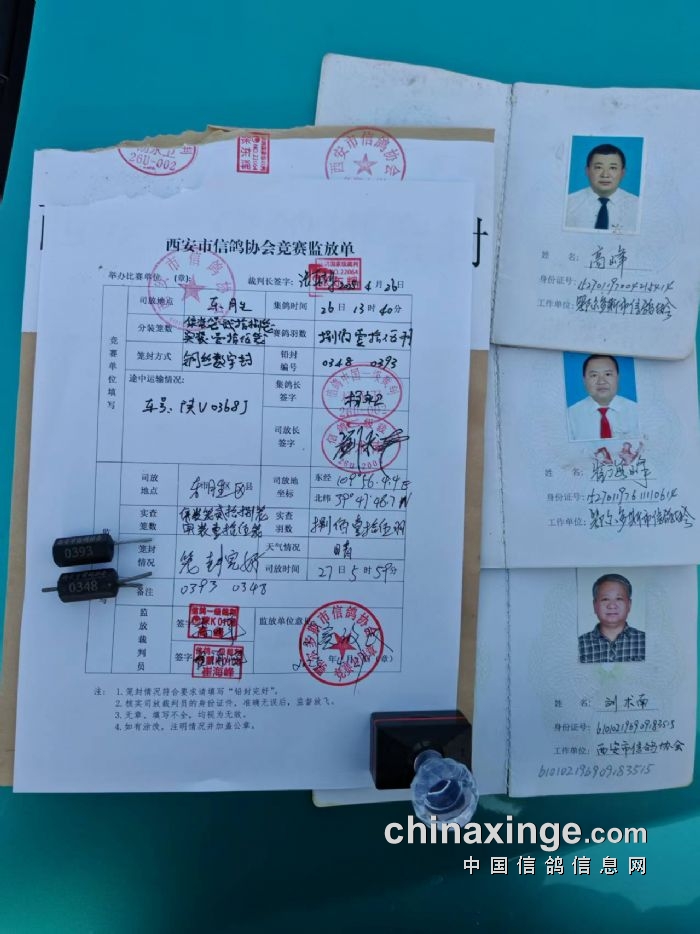 西安市信鸽协会
26U-002
西安市信鸽协会竞赛监放单
举办比赛单位:(章):
裁判长签字:
4月26日
竞赛单位填写
司放地点
集鸽时间 26日13时40分
分装笼数
赛鸽羽数 捌佰壹拾伍羽
笼封方式 钢丝数字封
铅封编号 0348 0393
途中运输情况:
车号:陕V0368J
集鸽长签字
司放长签字
司放地点
司放地坐标
东经 109°56.4.4E
北纬 39°47.48.7N
实查笼数
实查羽数 捌佰壹拾伍羽
笼封情况 笼封完好
天气情况 晴
司放时间 27日5时59分
备注 0393 0348
监放裁判员
签字
签字
监放单位意见
信鸽一级裁判
崔海峰
鄂尔多斯市信鸽协会
注: 1.笼封情况符合要求请填写“铅封完好”。
2.核实司放裁判员的身份证件,准确无误后,监督放飞。
3.无章、填写不全,均视为无效。
4.如有涂改,注明情况并加盖公章。
0393
0348
姓 名: 高峰
身份证号:
工作单位: 鄂尔多斯市信鸽协会
姓 名: 崔海峰
身份证号:
工作单位: 鄂尔多斯市信鸽协会
姓 名: 刘木南
身份证号: 610102196909183515
工作单位: 西安市信鸽协会
610102196909183515
chinaxinge.com
中国信鸽信息网